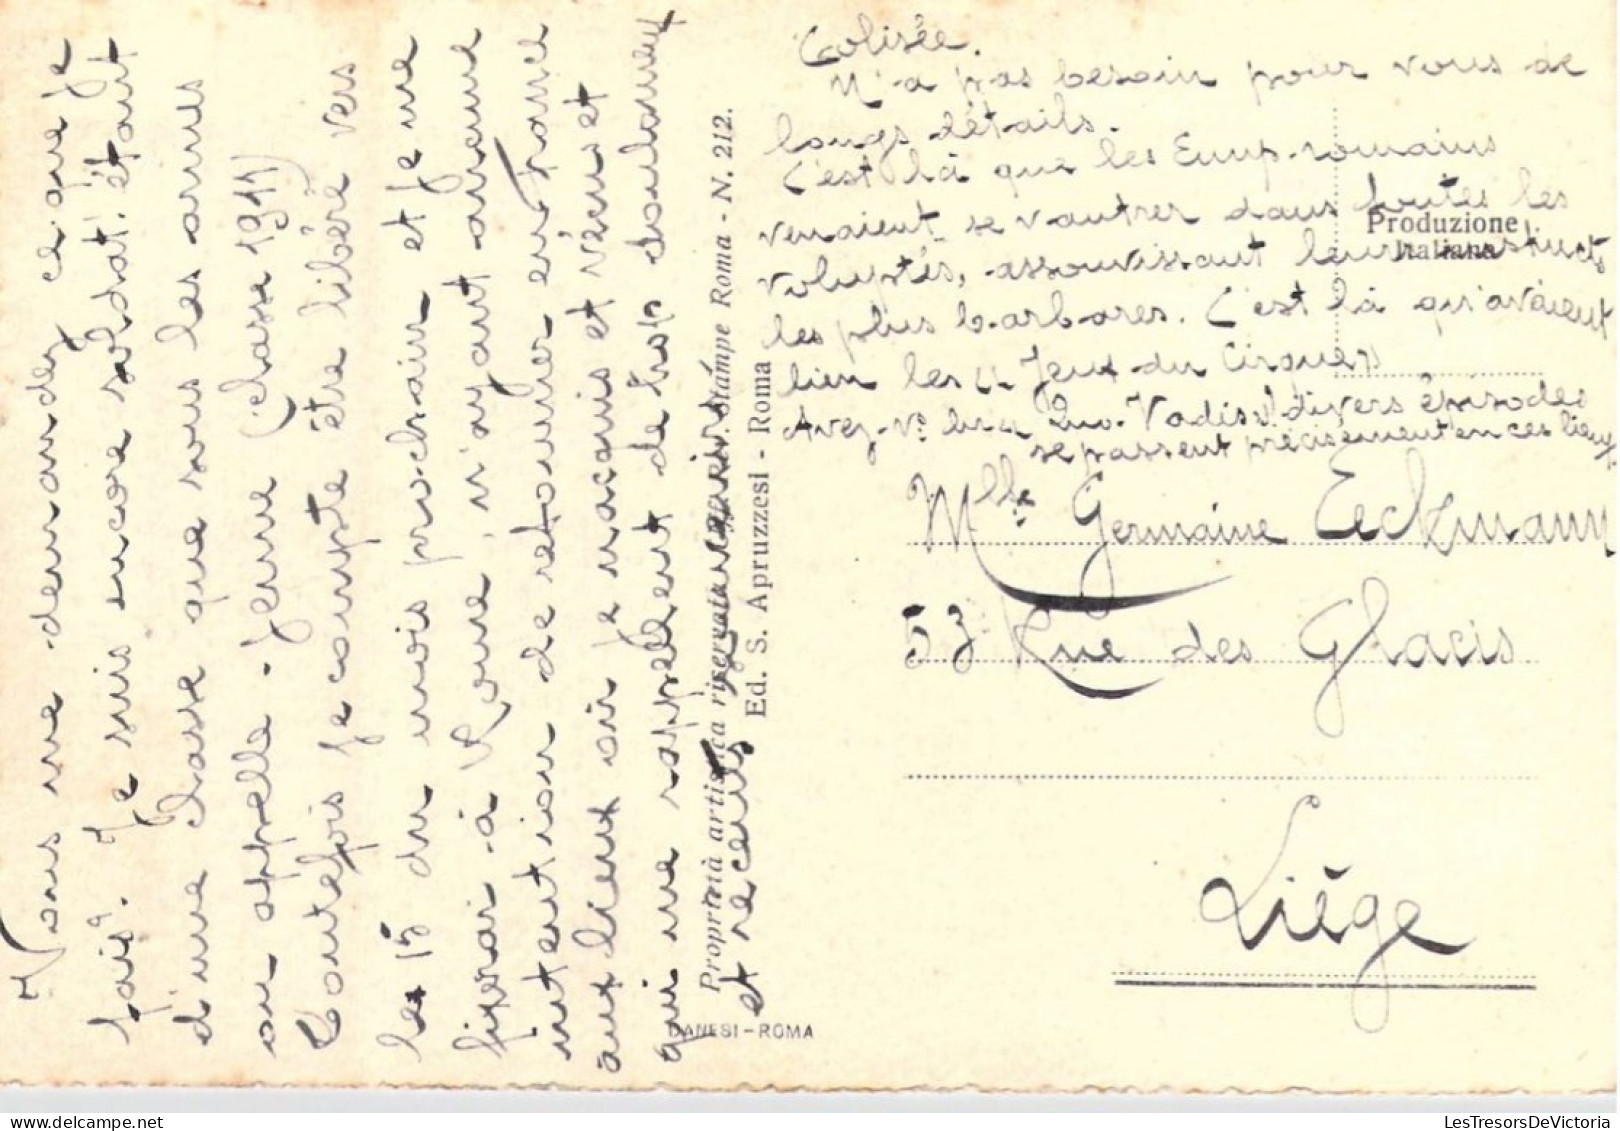 Vous me demandez ce que je
fais. Je suis encore soldat! étant
d'une classe que sous les armes
on appelle. Jeune (classe 1911)
Toutefois je compte être libéré vers
le 15 du mois prochain et je me
fixerai à Rome, n'ayant aucune
intention de retourner en France
aux lieux où je naquis et vécus et
qui me rappellent de trop douloureux
et récents souvenirs.
Proprietà artistica riservata. Stampe Roma - N. 212.
Ed. S. Apruzzesi - Roma
DANESI-ROMA
Colisée.
N'a pas besoin pour vous de
longs détails.
C'est là que les Emp. romains
venaient se vautrer dans toutes les
voluptés, assouvissant leurs instincts
les plus barbares. C'est là qu'avaient
lieu les "Jeux du Cirque"
Avez-vs lu "Quo-Vadis"? divers épisodes
se passent précisément en ces lieux.
Produzione
Italiana
Mlle Germaine Eeckmann
53 Rue des Glacis
Liège
LesTresorsDeVictoria.com